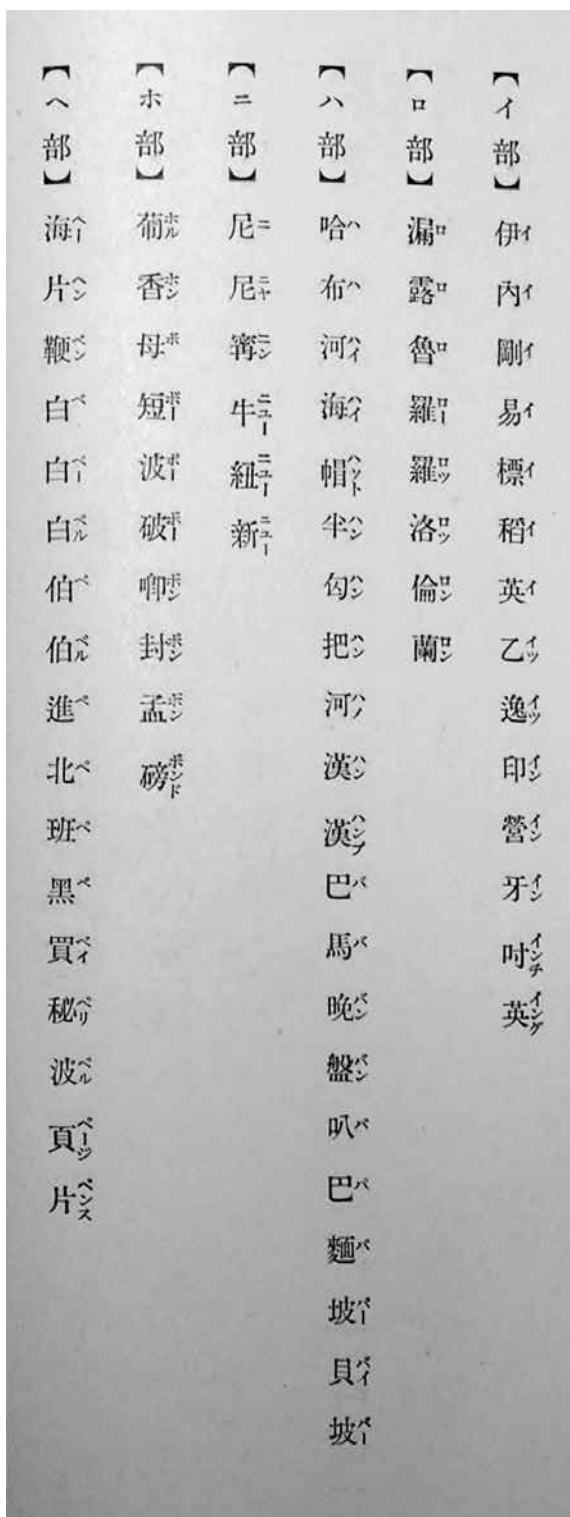 【イ部】伊イ 內イ 剛イ 易イ 標イ 稻イ 英イ 乙イツ 逸イツ 印イン 營イン 牙イン 吋インチ 英イング
【ロ部】漏ロ 露ロ 魯ロ 羅ロー 羅ロツ 洛ロツ 倫ロン 蘭ロン
【ハ部】哈ハ 布ハ 河ハイ 海ハイ 帽ハツト 半ハン 匈ハン 把ハン 河ハノ 漢ハン 漢ハンブ 巴バ 馬バ 晚バン 盤バン 叭パ 巴パ 麵パ 坡パー 貝パイ 坡ペー
【ニ部】尼ニ 尼ニヤ 寗ニン 牛ニユー 紐ニユー 新ニユー
【ホ部】葡ホル 香ホン 母ボ 短ボー 波ボー 破ボー 啣ポン 封ポン 孟ボン 磅ポンド
【ヘ部】海ヘー 片ヘン 鞭ベン 白ベ 白ベー 白ベル 伯ペ 伯ベル 進ペ 北ペ 班ペ 黑ペ 買ベイ 秘ペリ 波ペル 頁ページ 片ペンス